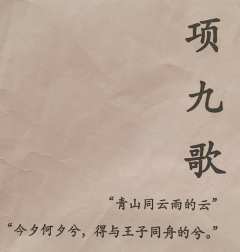 项九歌
“青山同云雨的云”
“今夕何夕兮，得与王子同舟的兮。”